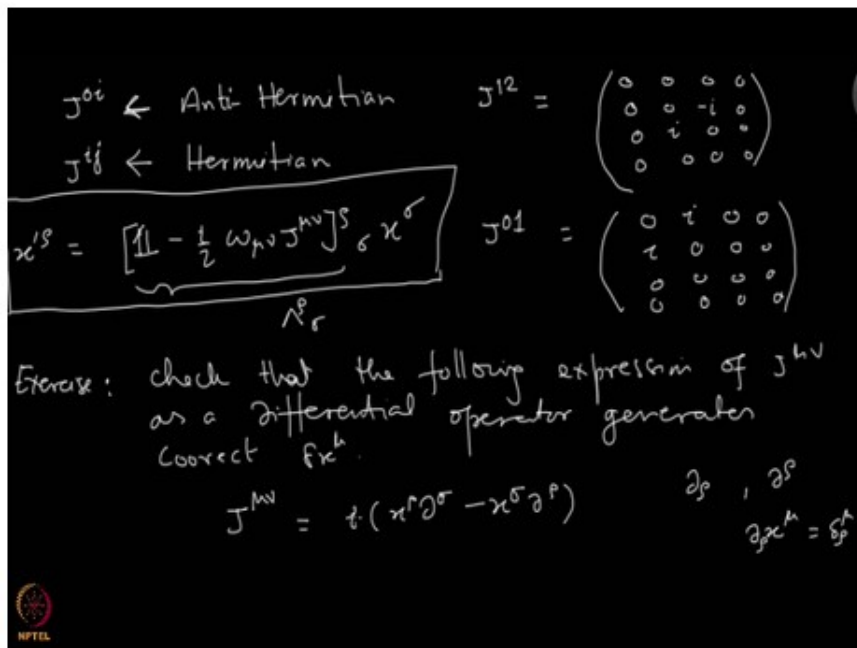 J⁰ⁱ ← Anti-Hermitian
J¹² = (0 0 0 0
0 0 -i 0
0 i 0 0
0 0 0 0)
Jⁱʲ ← Hermitian
x'^ρ = [𝟙 - 1/2 ω_μν J^μν]^ρ_σ x^σ
Λ^ρ_σ
J⁰¹ = (0 i 0 0
i 0 0 0
0 0 0 0
0 0 0 0)
Exercise: check that the following expression of J^μν
as a differential operator generates
coorect δx^μ.
J^μν = i(x^ρ∂^σ - x^σ∂^ρ)
∂_ρ , ∂^ρ
∂_ρ x^μ = δ_ρ^μ
NPTEL